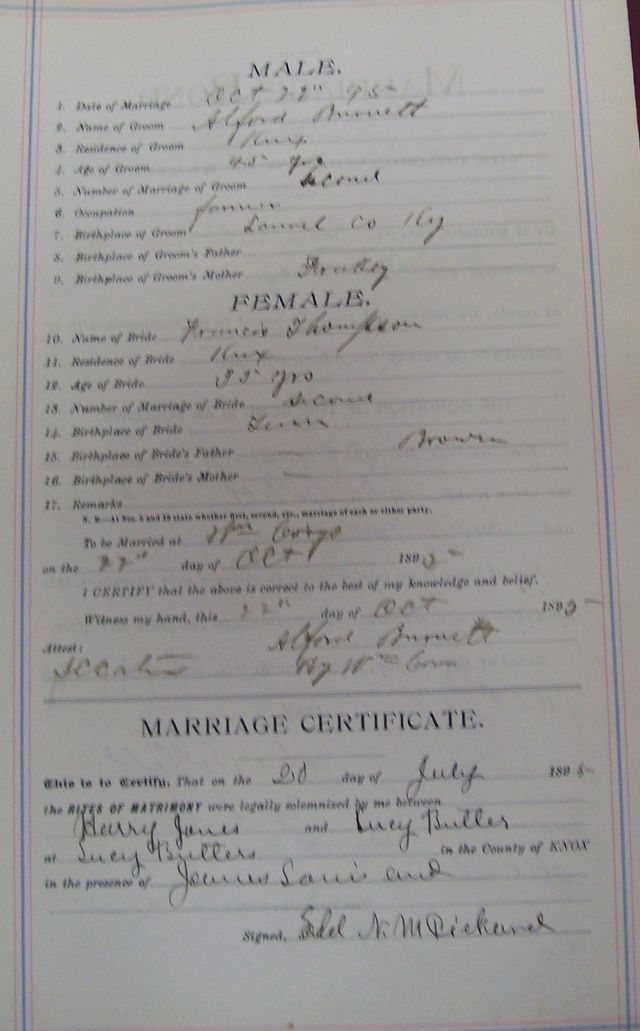 MALE.
1. Date of Marriage Oct 22" 95
2. Name of Groom Alford Burnett
3. Residence of Groom Knx
4. Age of Groom 45 yrs
5. Number of Marriage of Groom second
6. Occupation farmer
7. Birthplace of Groom Laurel Co Ky
8. Birthplace of Groom's Father
9. Birthplace of Groom's Mother
FEMALE.
10. Name of Bride Francis Thompson
11. Residence of Bride Knx
12. Age of Bride 35 yrs
13. Number of Marriage of Bride second
14. Birthplace of Bride Tenn
15. Birthplace of Bride's Father — Brown
16. Birthplace of Bride's Mother —
17. Remarks
N. B.—At Nos. 5 and 13 state whether first, second, etc., marriage of each or either party.
To be Married at Wm
on the 22" day of Oct 1895
I CERTIFY that the above is correct to the best of my knowledge and belief.
Witness my hand, this 22" day of Oct 1895
Alford Burnett
Attest:
By Wm
MARRIAGE CERTIFICATE.
This is to Certify, That on the day of July 1895
the RITES OF MATRIMONY were legally solemnized by me between
Harry Jones and Lucy Butler
at Lucy Butlers in the County of KNOX
in the presence of James and
Signed,